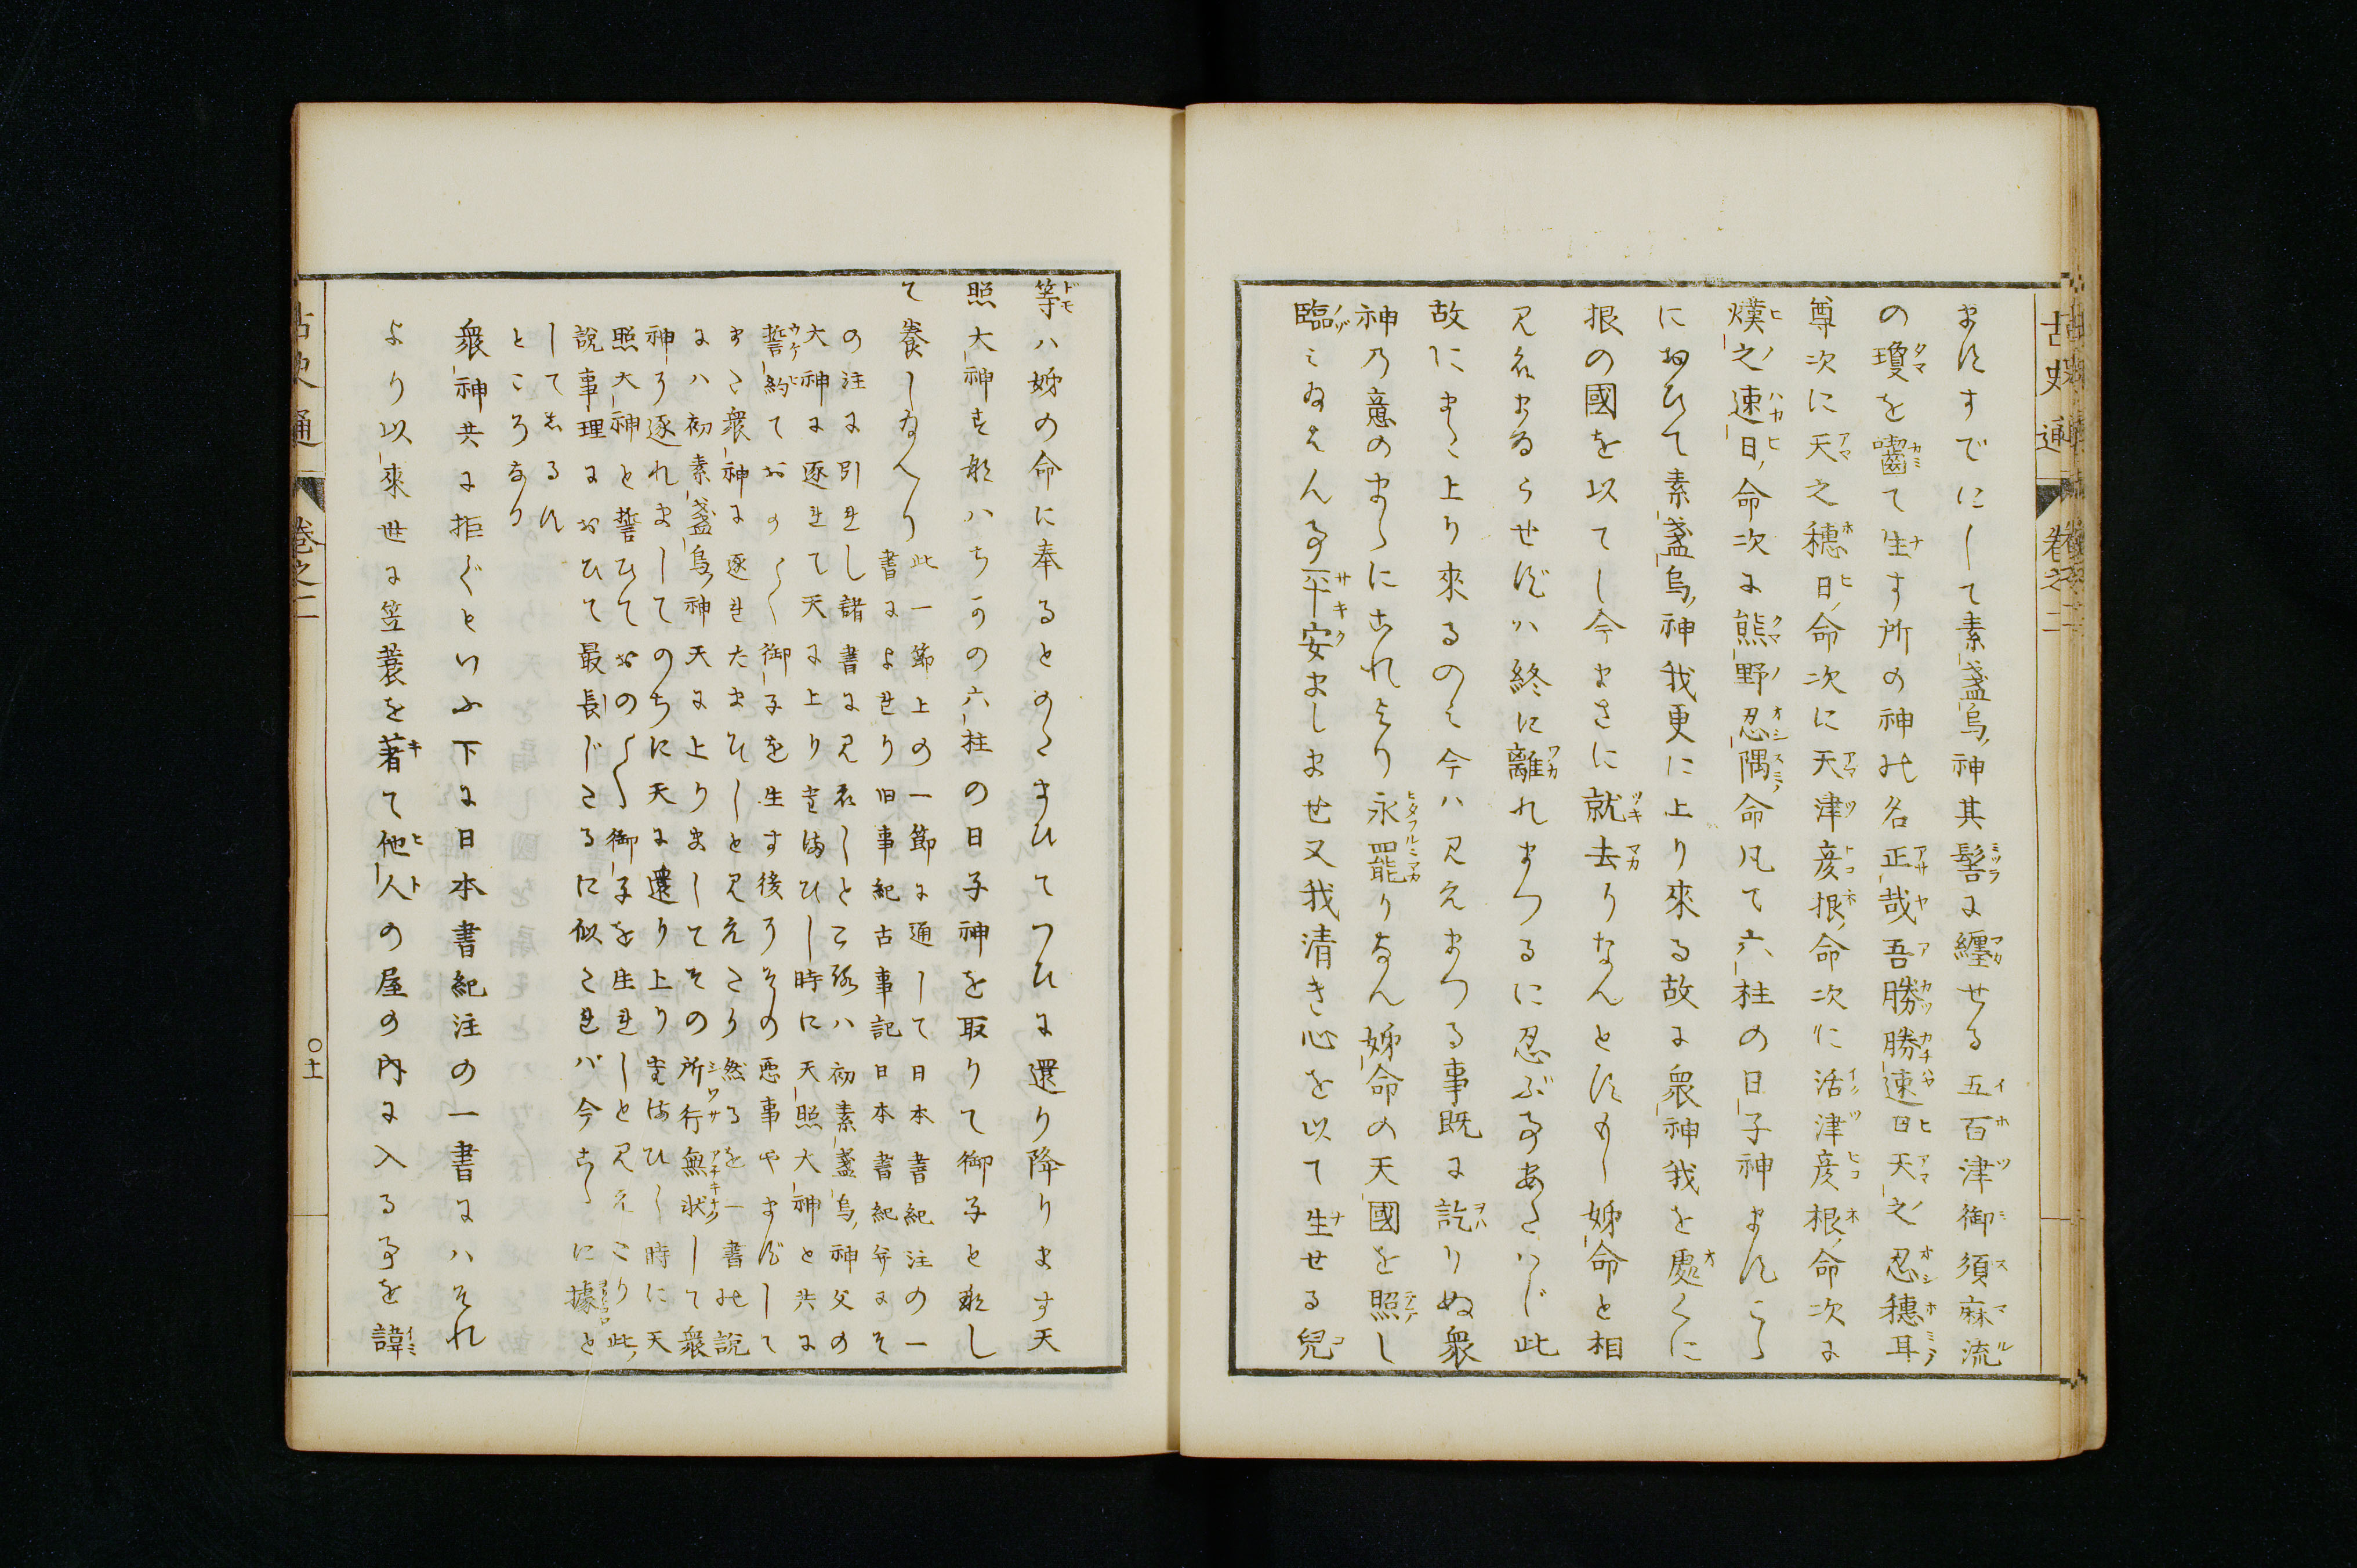 古史通 卷之二
ますすでにして素盞烏神其髻に纒せる五百津御須麻流
の瓊を囓て生す所の神の名正哉吾勝勝速日天之忍穗耳
尊次に天之穗日命次に天津彦根命次に活津彦根命次に
熯之速日命次に熊野忍隅命凡て六柱の日子神ますこゝ
におひて素盞烏神我更に上り來る故は衆神我を處くに
根の國を以てし今まさに就去りなんとすもし姊命と相
見衣まゐらせずハ終に離れまつるに忍ぶ事あたハじ此
故にまた上り來るのミ今ハ見えまつる事既に訖りぬ衆
神乃意のまゝにこれより永罷りなん姊命の天國を照し
臨ミゐえん事平安ましませ又我清き心を以て生せる兒
等ハ姊の命に奉るとのたまひてつひに還り降ります天
照大神を ハち の六柱の日子神を取りて御子と し
て養しなへり此一節上の一節に通して日本書紀注の一
書によれり旧事紀古事記日本書紀并にそ
の注に引れし諸書に見衣しところハ初素盞烏神父の
大神に逐れて天に上りたまひし時に天照大神と共に
誓約ておの〱御子を生す後にその惡事やまずして
また衆神に逐れたまひしと見えたり然るを一書の説
にハ初素盞烏神天に上りましてその所行無狀して衆
神に逐れましてのちに天に還り上りたまひし時に天
照大神と誓ひておの〱御子を生れしと見えたり此
説事理におひて最長じたるに似たれバ今こゝに據と
してしるす
ところなり
衆神共に拒ぐといふ下に日本書紀注の一書にハそれ
より以來世に笠蓑を著て他人の屋の内に入る事を諱
古史通 卷之二
〇十一